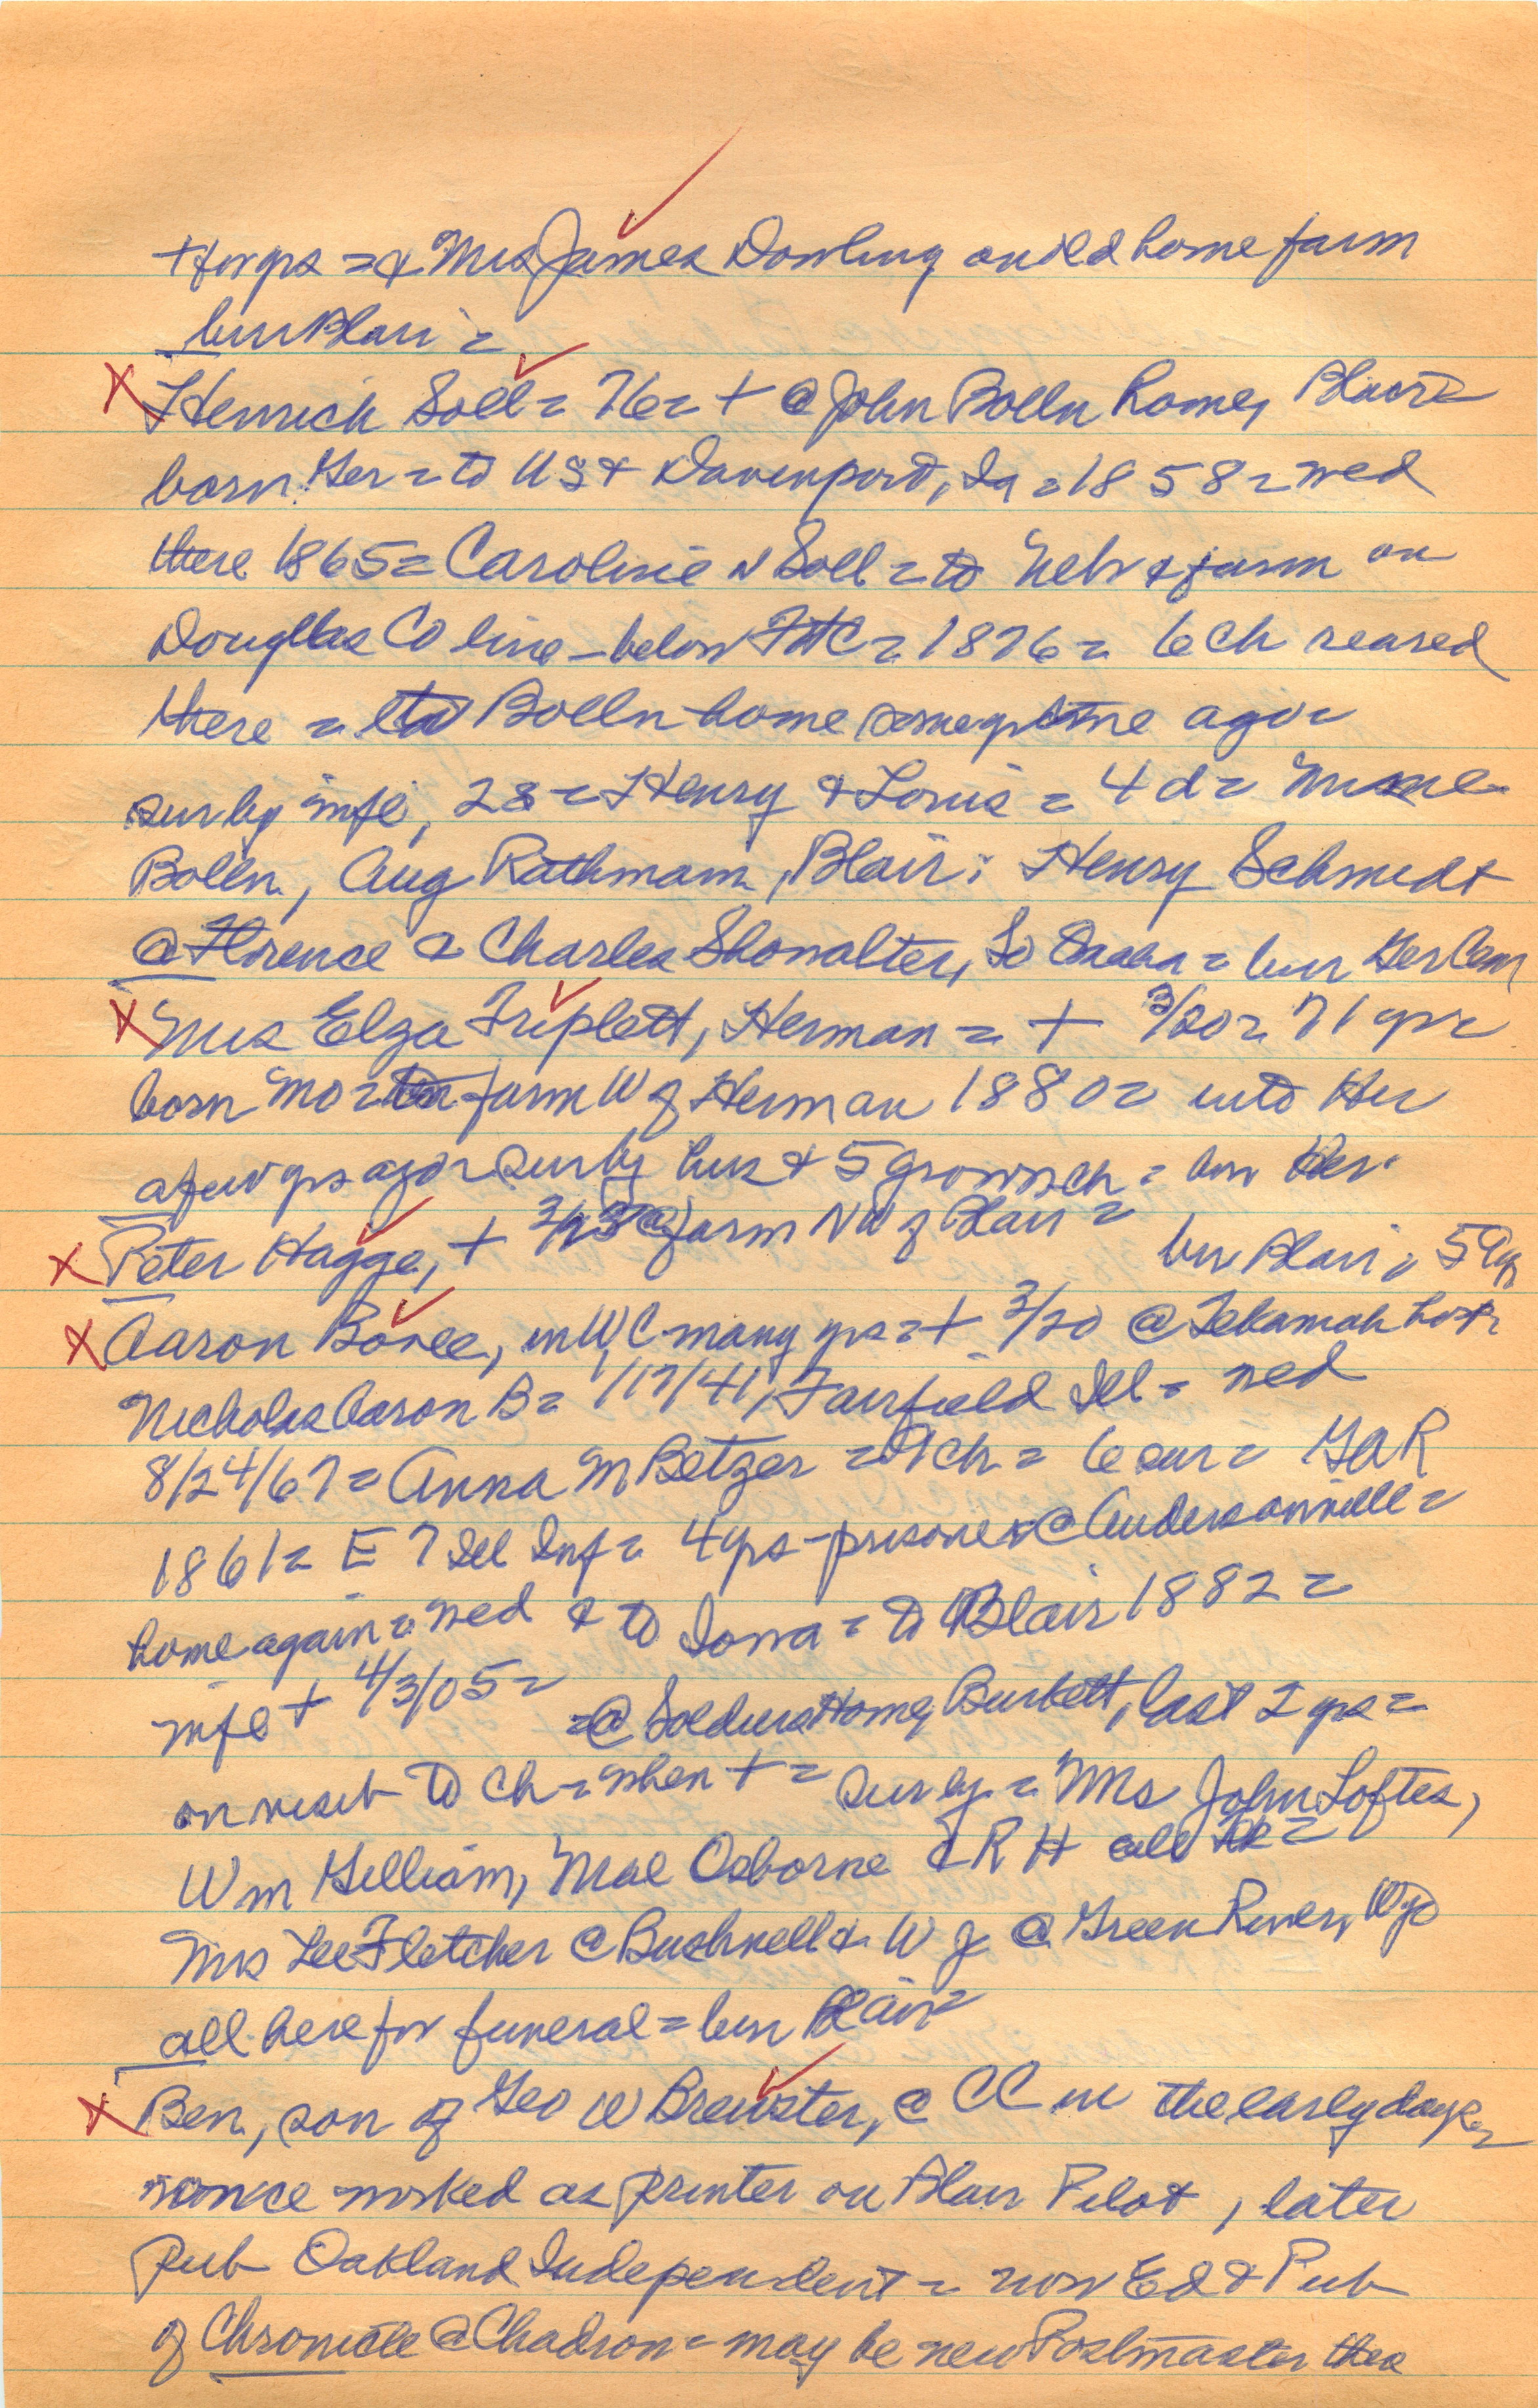 = & Mrs James Dowling on old home farm
bur Blair =
X Henrich Soll = 76 = + @ John Bolln home, Blair =
born Ger = to US & Davenport, Ia = 1858 = wed
there 1865 = Caroline N Soll = to Neb & farm on
Douglas Co line - below FtC = 1876 = 6 ch reared
there = to Bolln home some time ago =
sur by wife, 2s = Henry & Louis = 4 d =
Bolln, Aug Rathmann, Blair; Henry Schmidt
@ Florence & Charles Showalter, So Omaha = bur Ger Cem
X Mrs Elza Triplett, Herman = + 3/20 = 71 yr =
born Mo = to farm W of Herman 1880 = into Her
a few yrs ago = sur by hus & 5 grown ch = bur Her.
X Peter Hagge, + @ farm NW of Blair =
bur Blair = 59 yr
X Aaron Boree, in WC many yrs = + 3/20 @ Tekamah hosp =
Nicholas Aaron B = 1/17/41, Fairfield Ill = wed
8/24/67 = Anna M Betzer = 9 ch = 6 sur = GAR
1861 = E 7 Ill Inf = 4 yrs - prisoner @ Andersonville =
home again = wed & to Iowa = to Blair 1882 =
wife + 4/3/05 = = @ Soldiers Home, Burkett, last 2 yrs =
on visit to ch = when + = sur by = Mrs John Loftes,
Wm Gilliam, Mae Osborne & R H all Tek =
Mrs Lee Fletcher @ Bushnell & W J @ Green River, Wyo
all here for funeral = bur Blair =
X Ben, son of Geo W Brewster, @ CC in the early days,
once worked as printer on Blair Pilot, later
Pub Oakland Independent = now Ed & Pub
of Chronicle @ Chadron = may be new Postmaster there